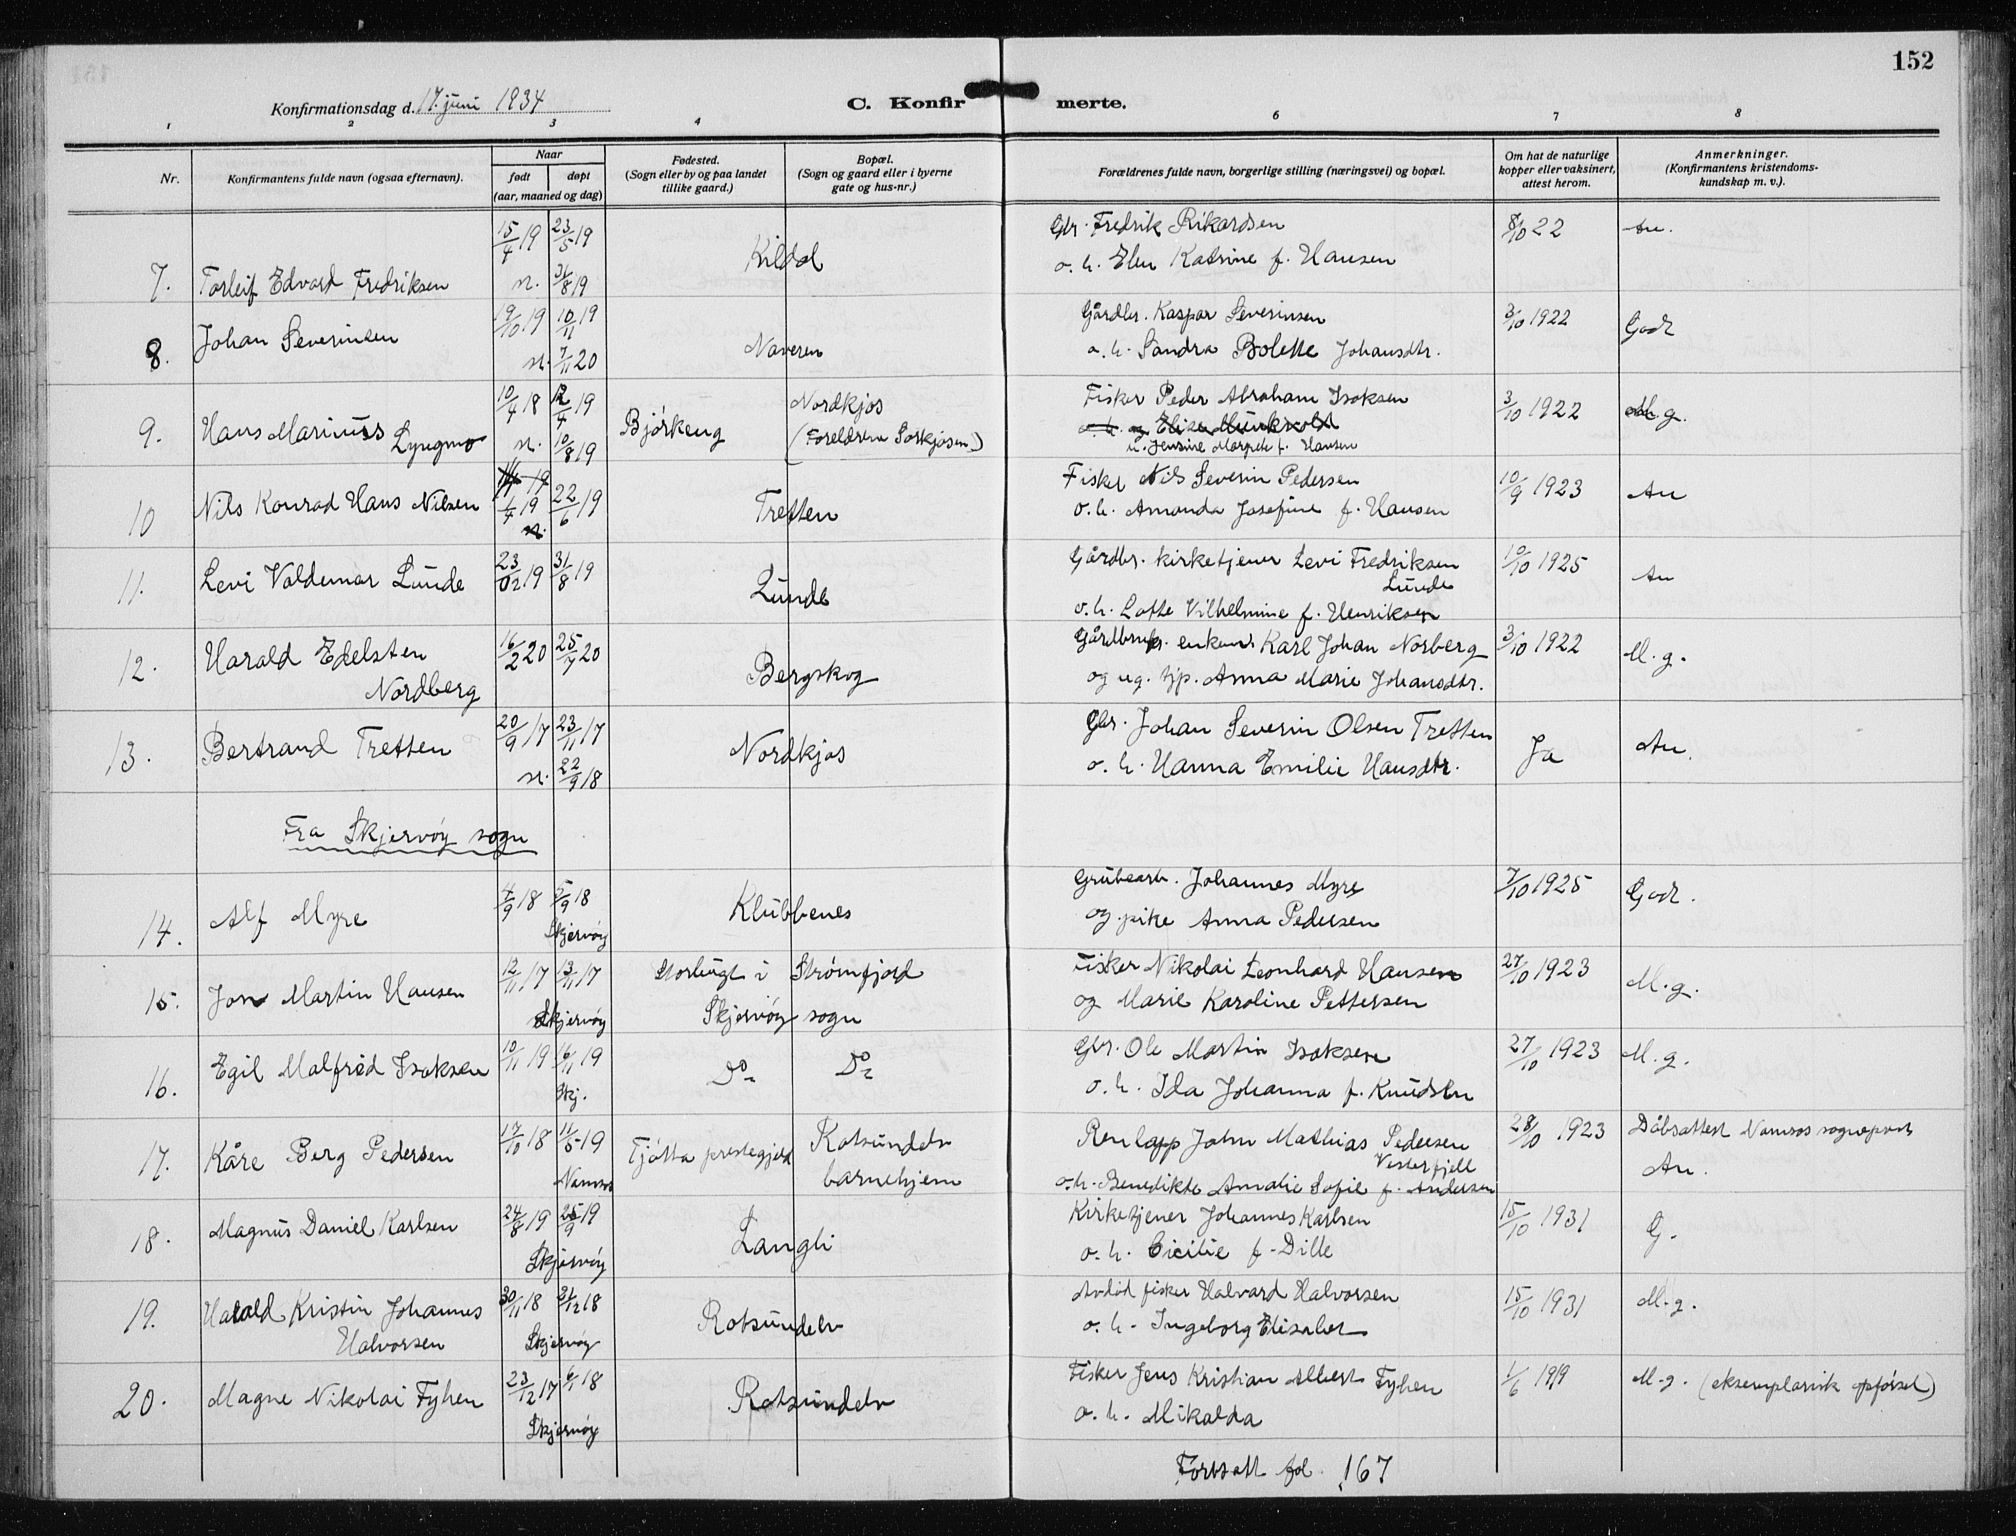 152
Konfirmationsdag d. 17. juni 1934
C. Konfirmerte.
1 2 3 4 6 7 8
Nr.
Konfirmantens fulde navn (ogsaa efternavn).
Naar
født døpt
(aar, maaned og dag)
Fødested.
(Sogn eller by og paa landet
tillike gaard.)
Bopæl.
(Sogn og gaard eller i byerne
gate og hus-nr.)
Forældrenes fulde navn, borgerlige stilling (næringsvei) og bopæl.
Om hat de naturlige
kopper eller vaksinert,
attest herom.
Anmerkninger.
(Konfirmantens kristendoms-
kundskap m. v.).
7. Torleif Edvard Fredriksen 15/4 19 23/5 19 n. 31/8 19 Kildal
Gbr. Fredrik Rikardsen 8/10 22 An.
o. h. Elen Katrine f. Hansen
8. Johan Severinsen 19/10 19 10/11 19 n. 7/11 20 Naveren
Gårdbr. Kaspar Severinsen 3/10 1922 Godt
o. h. Sandra Bolette Johansdtr.
9. Hans Marinius Lyngmo 10/4 18 12/4 19 n. 10/8 19 Bjørkeng Nordkjos
(Foreldrene Sørkjosen)
Fisker Peder Abraham Isaksen 3/10 1922 M.g.
o. h. og Elise Munkvold
u. Jensine Margrete f. Hansen
10 Nils Konrad Hans Nilsen 1/4 19 22/6 19 n. Tretten
Fisker Nils Severin Pedersen 10/9 1923 An
o. h. Amanda Josefine f. Hansen
11. Levi Valdemar Lunde 23/02 19 31/8 19 Lunde
Gårdbr. kirketjener Levi Fredriksen Lunde 10/10 1925 An
o. h. Lotte Vilhelmine f. Henriksen
12. Harald Edelsten Nordberg 16/2 20 25/7 20 Bergskog
Gårdbruk. enkem. Karl Johan Norberg 3/10 1922 M.g.
og ug. tjp. Anna Marie Johansdtr.
13. Bertrand Tretten 20/9 17 23/11 17 n. 22/9 18 Nordkjos
Gbr. Johan Severin Olsen Tretten Ja An.
o. h. Hanna Emilie Hansdtr.
Fra Skjervøy sogn
14. Alf Myre 4/9 18 5/9 18 Skjervøy Klubbenes
Grubearb. Johannes Myre 7/10 1925 Godt.
og pike Anna Pedersen
15. Jon Martin Hansen 12/11 17 13/11 17 Skjervøy Storbugt i Strømfjord
Skjervøy sogn
Fisker Nikolai Leonhard Hansen 27/10 1923 M.g.
og Marie Karoline Pettersen
16. Egil Malfred Isaksen 10/11 19 16/11 19 Skj. Do Do
Gbr. Ole Martin Isaksen 27/10 1923 M.g.
o. h. Ida Johanna f. Knudsen
17. Kåre Berg Pedersen 17/10 18 11/5 19 Namsos Tjøtta prestegjeld Rotsundelv
barnehjem
Renlapp John Mathias Pedersen Vesterfjell 28/10 1923 Dåbsattest Namsos sogneprest
o. h. Benedikte Amalie Sofie f. Andersen An.
18. Magnus Daniel Karlsen 24/8 19 25/9 19 Skjervøy Langli
Kirketjener Johannes Karlsen 15/10 1931 G.
o. h. Cicilie f. Dille
19. Harald Kristin Johannes Halvorsen 30/11 18 31/12 18 Skjervøy Rotsundelv
Avdød fisker Halvard Halvorsen 15/10 1931 M.g.
o. h. Ingeborg Elisabet
20. Magne Nikolai Fyhen 23/12 17 6/1 18 Skjervøy Rotsundelv
Fisker Jens Kristian Albert Fyhen 1/6 1919 M.g. (eksemplarisk opførsel)
o. h. Mikalda
Fortsatt fol. 167